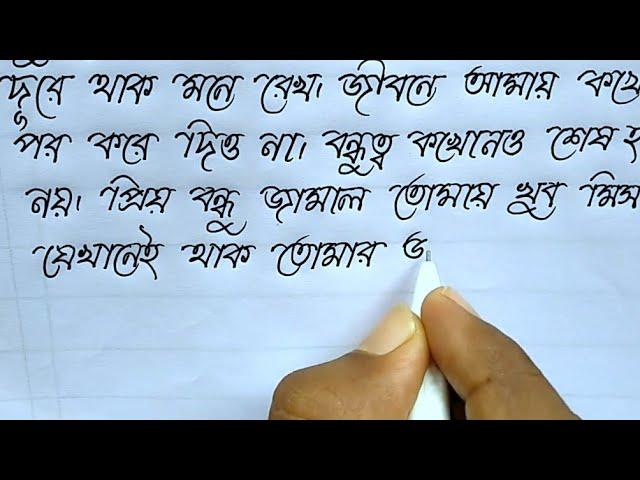 দূরে থাক মনে রেখ। জীবনে আমায় কখে
পর করে দিও না। বন্ধুত্ব কখোনও শেষ হ
নয়। প্রিয় বন্ধু জামাল তোমায় খুব মিস
যেখানেই থাক তোমার ভ